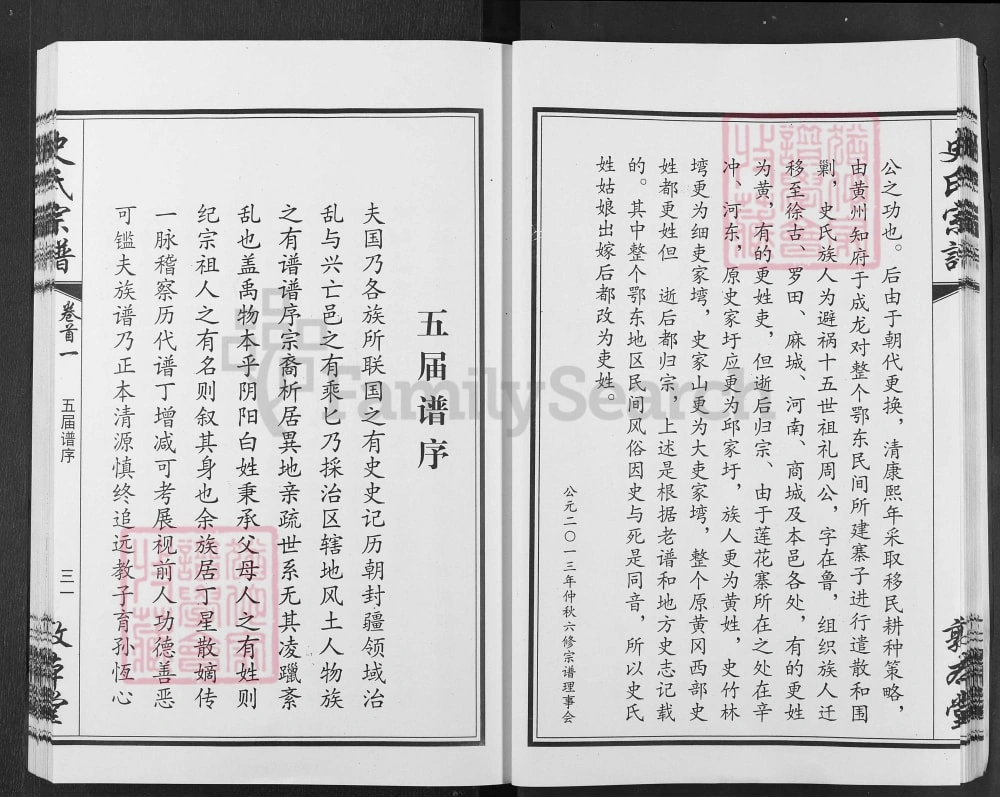 公之功也。后由于朝代更换，清康熙年采取移民耕种策略，
由黄州知府于成龙对整个鄂东民间所建寨子进行遣散和围
剿，史氏族人为避祸十五世祖礼周公，字在鲁，组织族人迁
移至徐古、罗田、麻城、河南、商城及本邑各处，有的更姓
为黄，有的更姓吏，但逝后归宗、由于莲花寨所在之处在辛
冲、河东，原史家圩应更为邱家圩，族人更为黄姓，史竹林
塆更为细吏家塆，史家山更为大吏家塆，整个原黄冈西部史
姓都更姓但 逝后都归宗，上述是根据老谱和地方史志记载
的。其中整个鄂东地区民间风俗因史与死是同音，所以史氏
姓姑娘出嫁后都改为吏姓。
公元二〇一三年仲秋六修宗谱理事会
五届谱序
夫国乃各族所联国之有史史记历朝封疆领域治
乱与兴亡邑之有乘匕乃採治区辖地风土人物族
之有谱谱序宗裔析居異地亲疏世系无其凌躐紊
乱也盖禹物本乎阴阳白姓秉承父母人之有姓则
纪宗祖人之有名则叙其身也余族居丁星散嫡传
一脉稽察历代谱丁增减可考展视前人功德善恶
可鑑夫族谱乃正本清源慎终追远教子育孙恆心
史氏宗谱
卷首一
五届谱序
三一
FamilySearch